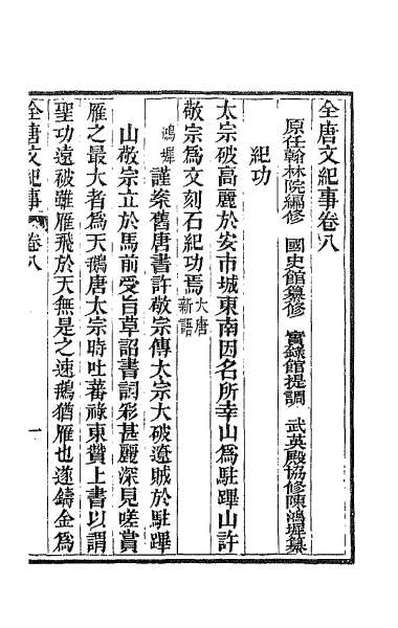 全唐文紀事卷八
原任翰林院編修 國史館纂修 實錄館提調 武英殿協修陳鴻墀纂
紀功
太宗破高麗於安市城東南因名所幸山爲駐蹕山許
敬宗爲文刻石紀功焉大唐新語
鴻墀謹案舊唐書許敬宗傳太宗大破遼賊於駐蹕
山敬宗立於馬前受旨草詔書詞彩甚麗深見嗟賞
雁之最大者爲天鵝唐太宗時吐蕃祿東贊上書以謂
聖功遠被雖雁飛於天無是之速鵝猶雁也遂鑄金爲
全唐文紀事 卷八 一